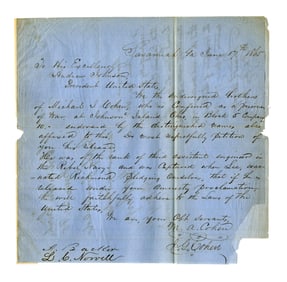 Savannah Ga June 17th 1865
To His Excellency
Andrew Johnson
President United States,
We the undersigned brothers
of Michael S. Cohen, who is confined as a prisoner
of War, at Johnsons Island Ohio, in Block 6 Company
endorsed by the distinguished names also
affixed to this, do most respectfully petition of
you his release.
He was of the rank of third assistant engineer in
the Rebel Navy, and was captured when Lee evac-
uated Richmond Pledging ourselves, that if he is
released under your Amnesty proclamation,
he will faithfully adhere to the Laws of the
United States.
We are, your Obt Servants
M. A. Cohen
Cohen
D. C. Norvell